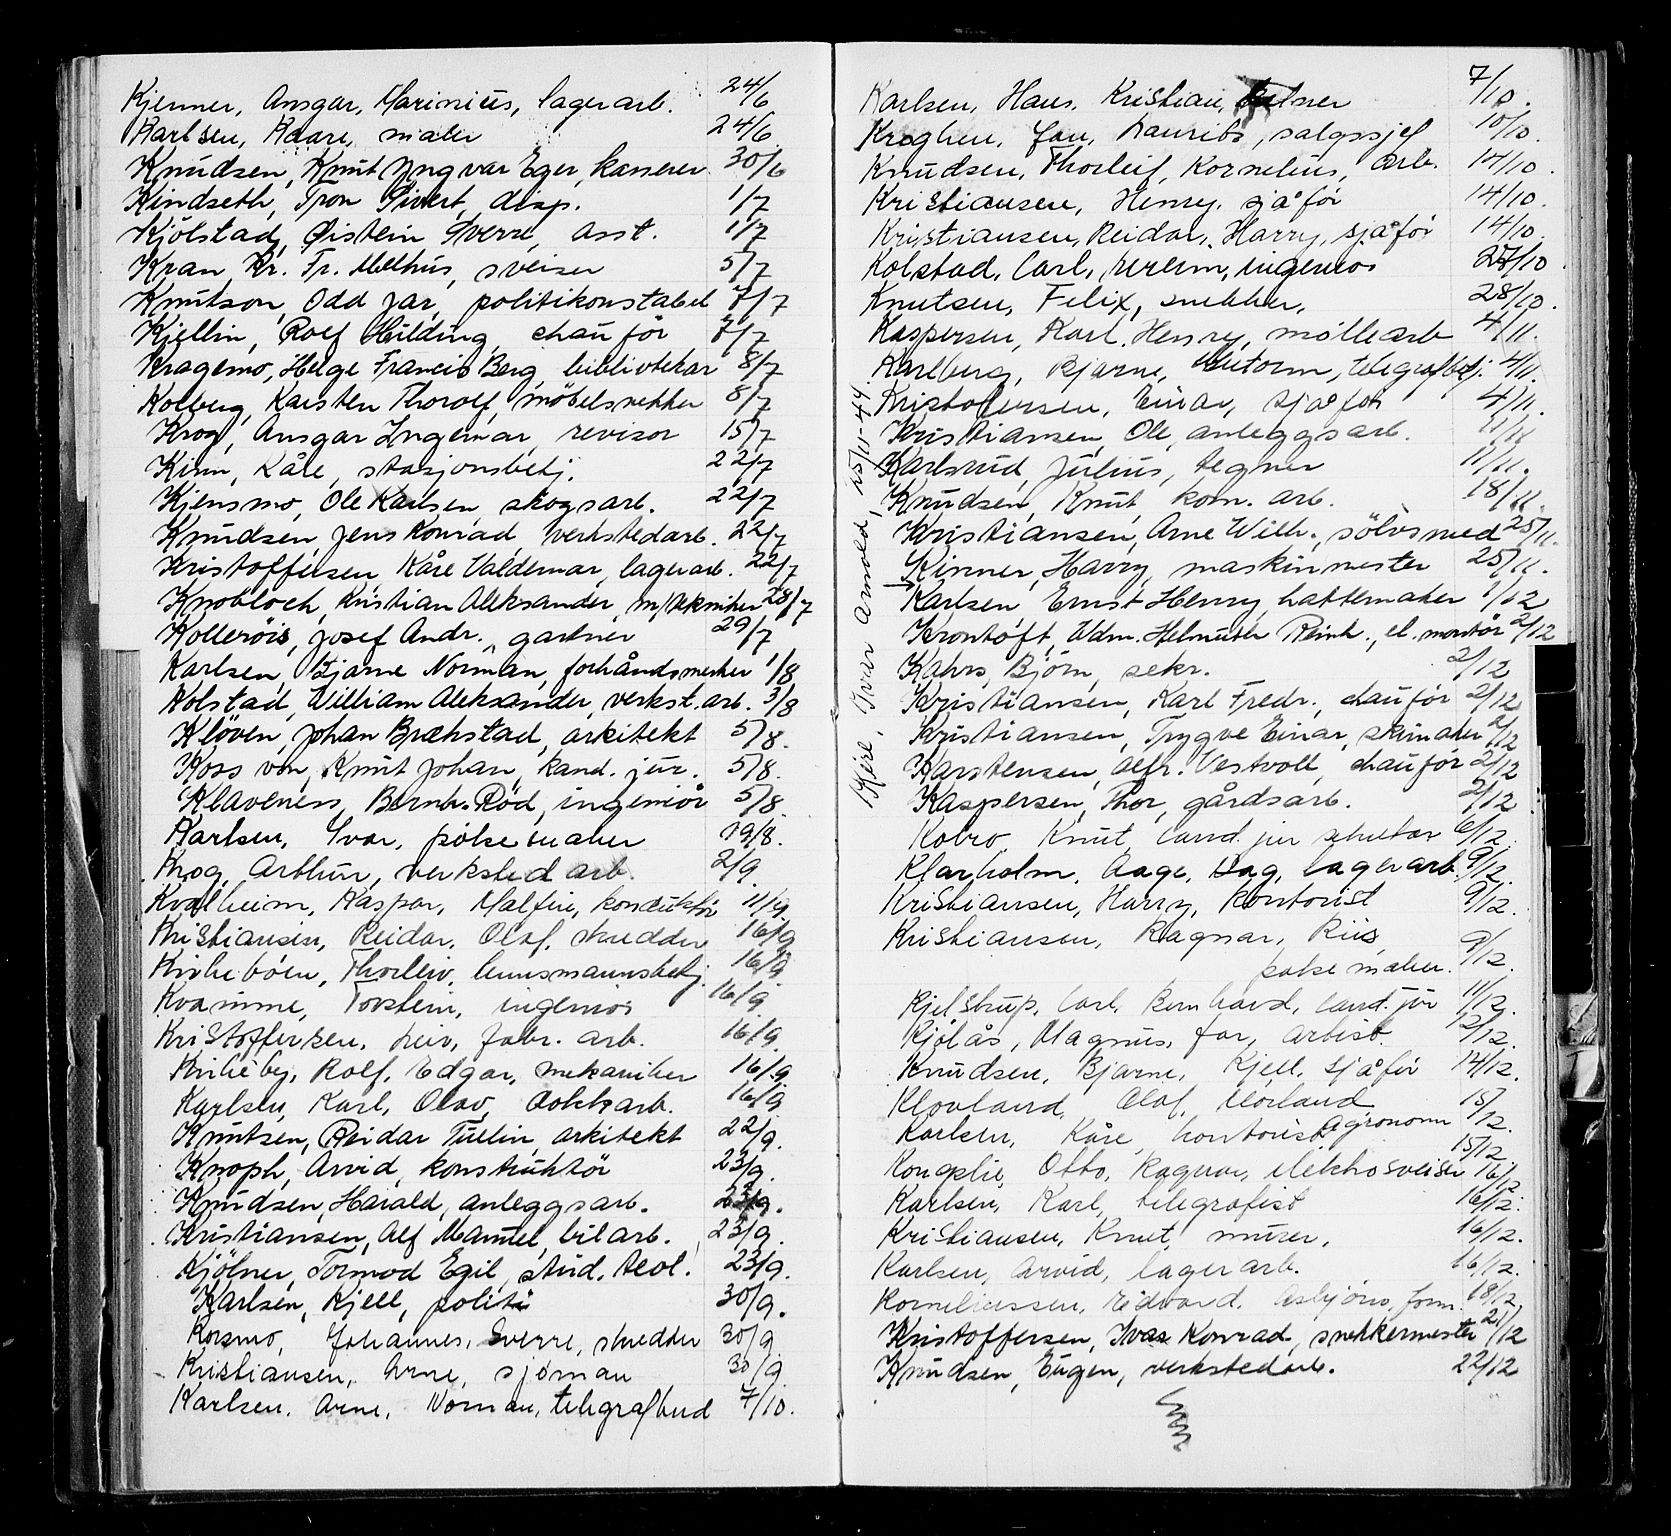 Kjenner, Ansgar, Marinius, lagerarb. 24/6
Karlsen, Kaare, maler 24/6
Knudsen, Knut Yngvar Eger, kasserer 30/6
Kindseth, Tron Sivert, disp. 1/7
Kjölstad, Øistein Sverre, asst. 1/7
Kran, Kr. Fr. Melhus, sveiser 5/7
Knutson, Odd Jar, politikonstabel 7/7
Kjellin, Rolf Hilding, chauför 7/7
Kragemo, Helge Francis Berg, bibliotekar 8/7
Kolberg, Karsten Thorolf, möbelsnekker 8/7
Krog, Ansgar Ingemar, revisor 15/7
Kinn, Kåre, stasjonsbetj. 22/7
Kjensmo, Ole Karlsen, skogsarb. 22/7
Knudsen, Jens Konrad, verkstedarb. 22/7
Kristoffersen, Kåre Valdemar, lagerarb. 22/7
Knobloch, Kristian Aleksander, m/tekniker 28/7
Kolleröis, Josef Andr., gartner 29/7
Karlsen, Bjarne Norman, forhåndsmerker 1/8
Kolstad, William Aleksander, verkst.arb. 3/8
Klöven, Johan Brækstad, arkitekt 5/8.
Koss von, Knut Johan, kand. jur. 5/8.
Klaveness, Bernh. Röd, ingeniör 5/8
Karlsen, Ivar, pölsemaker 19/8.
Krog, Arthur, verksted arb. 2/9.
Kvalheim, Kaspar, Malfin, konduktör 11/9.
Kristiansen, Reidar, Olaf, skredder 16/9
Kirkebøen, Thorleiv, lensmannsbetj. 16/9.
Kvamme, Torstein, ingeniør 16/9.
Kristoffersen, Leiv, fabr. arb. 16/9.
Kirkeby, Rolf, Edgar, mekaniker 16/9
Karlsen, Karl, Olav, dokkarb. 16/9
Knutsen, Reidar Tullin, arkitekt 22/9.
Knoph, Arvid, konstruktör 23/9.
Knudsen, Harald, anleggsarb. 23/9.
Kristiansen, Alf Manuel, bilarb. 23/9.
Kjölner, Tormod Egil, stud. teol. 23/9.
Karlsen, Kjell, politi 30/9.
Korsmo, Johannes, Sverre, skredder 30/9
Kristiansen, Arne, sjöman 30/9.
Karlsen, Arne, Norman, telegrafbud 7/10.
Kjöse, Ivar Arnold, 25/11-44
Karlsen, Hans, Kristian, kelner 7/10.
Kroghen, Jan, Laurits, salgssjef 10/10.
Knudsen, Thorleif, Kornelius, arb. 14/10.
Kristiansen, Henry, sjåför 14/10.
Kristiansen, Reidar, Harry, sjåför 14/10.
Kolstad, Carl, ingeniør 27/10
Knutsen, Felix, snekker, 28/10.
Kaspersen, Karl, Henry, møllearb 4/11.
Karlberg, Bjarne, telegrafbetj. 4/11.
Kristofersen, Einar, sjåför 4/11.
Kristiansen, Ole, anleggsarb. 11/11
Karlsrud, Julius, tegner 11/11.
Knudsen, Knut, kom. arb. 18/11.
Kristiansen, Arne Wilh., sölvsmed 25/11.
Kinner, Harry, maskinmester 25/11.
Karlsen, Ernst Henry, hattemaker 1/12
Krontoft, Edm. Helmuter Reinh., el. montör 2/12
Kahrs, Björn, sekr. 2/12
Kristiansen, Karl Fredr., chauför 2/12
Kristiansen, Trygve Einar, skimaker 2/12
Karstensen, Alfr. Vestvoll, chauför 2/12
Kaspersen, Thor, gårdsarb. 2/12
Kobro, Knut, cand. jur sekretær 6/12.
Klarholm, Aage, Dag, lagerarb. 9/12.
Kristiansen, Harry, kontorist 9/12.
Kristiansen, Ragnar, Riis
pølsemaker. 9/12.
Kjelstrup, Carl, Bernhard, cand. jür 11/12.
Kjölås, Magnus, for, artist. 12/12.
Knudsen, Bjarne, Kjell, sjåför 14/12.
Klovland, Olaf, Morland 15/12.
Agronom
Karlsen, Kåre, kontorist 15/12
Kongslie, Otto, Ragnar, elektrosveiser 16/12
Karlsen, Karl, telegrafist 16/12.
Kristiansen, Knut, murer, 16/12.
Karlsen, Arvid, lagerarb. 16/12.
Korneliussen, Edvard, Asbjörn, form. 18/12
Kristoffersen, Ivar Konrad, snekkermester 21/12
Knudsen, Eugen, verkstedarb. 22/12